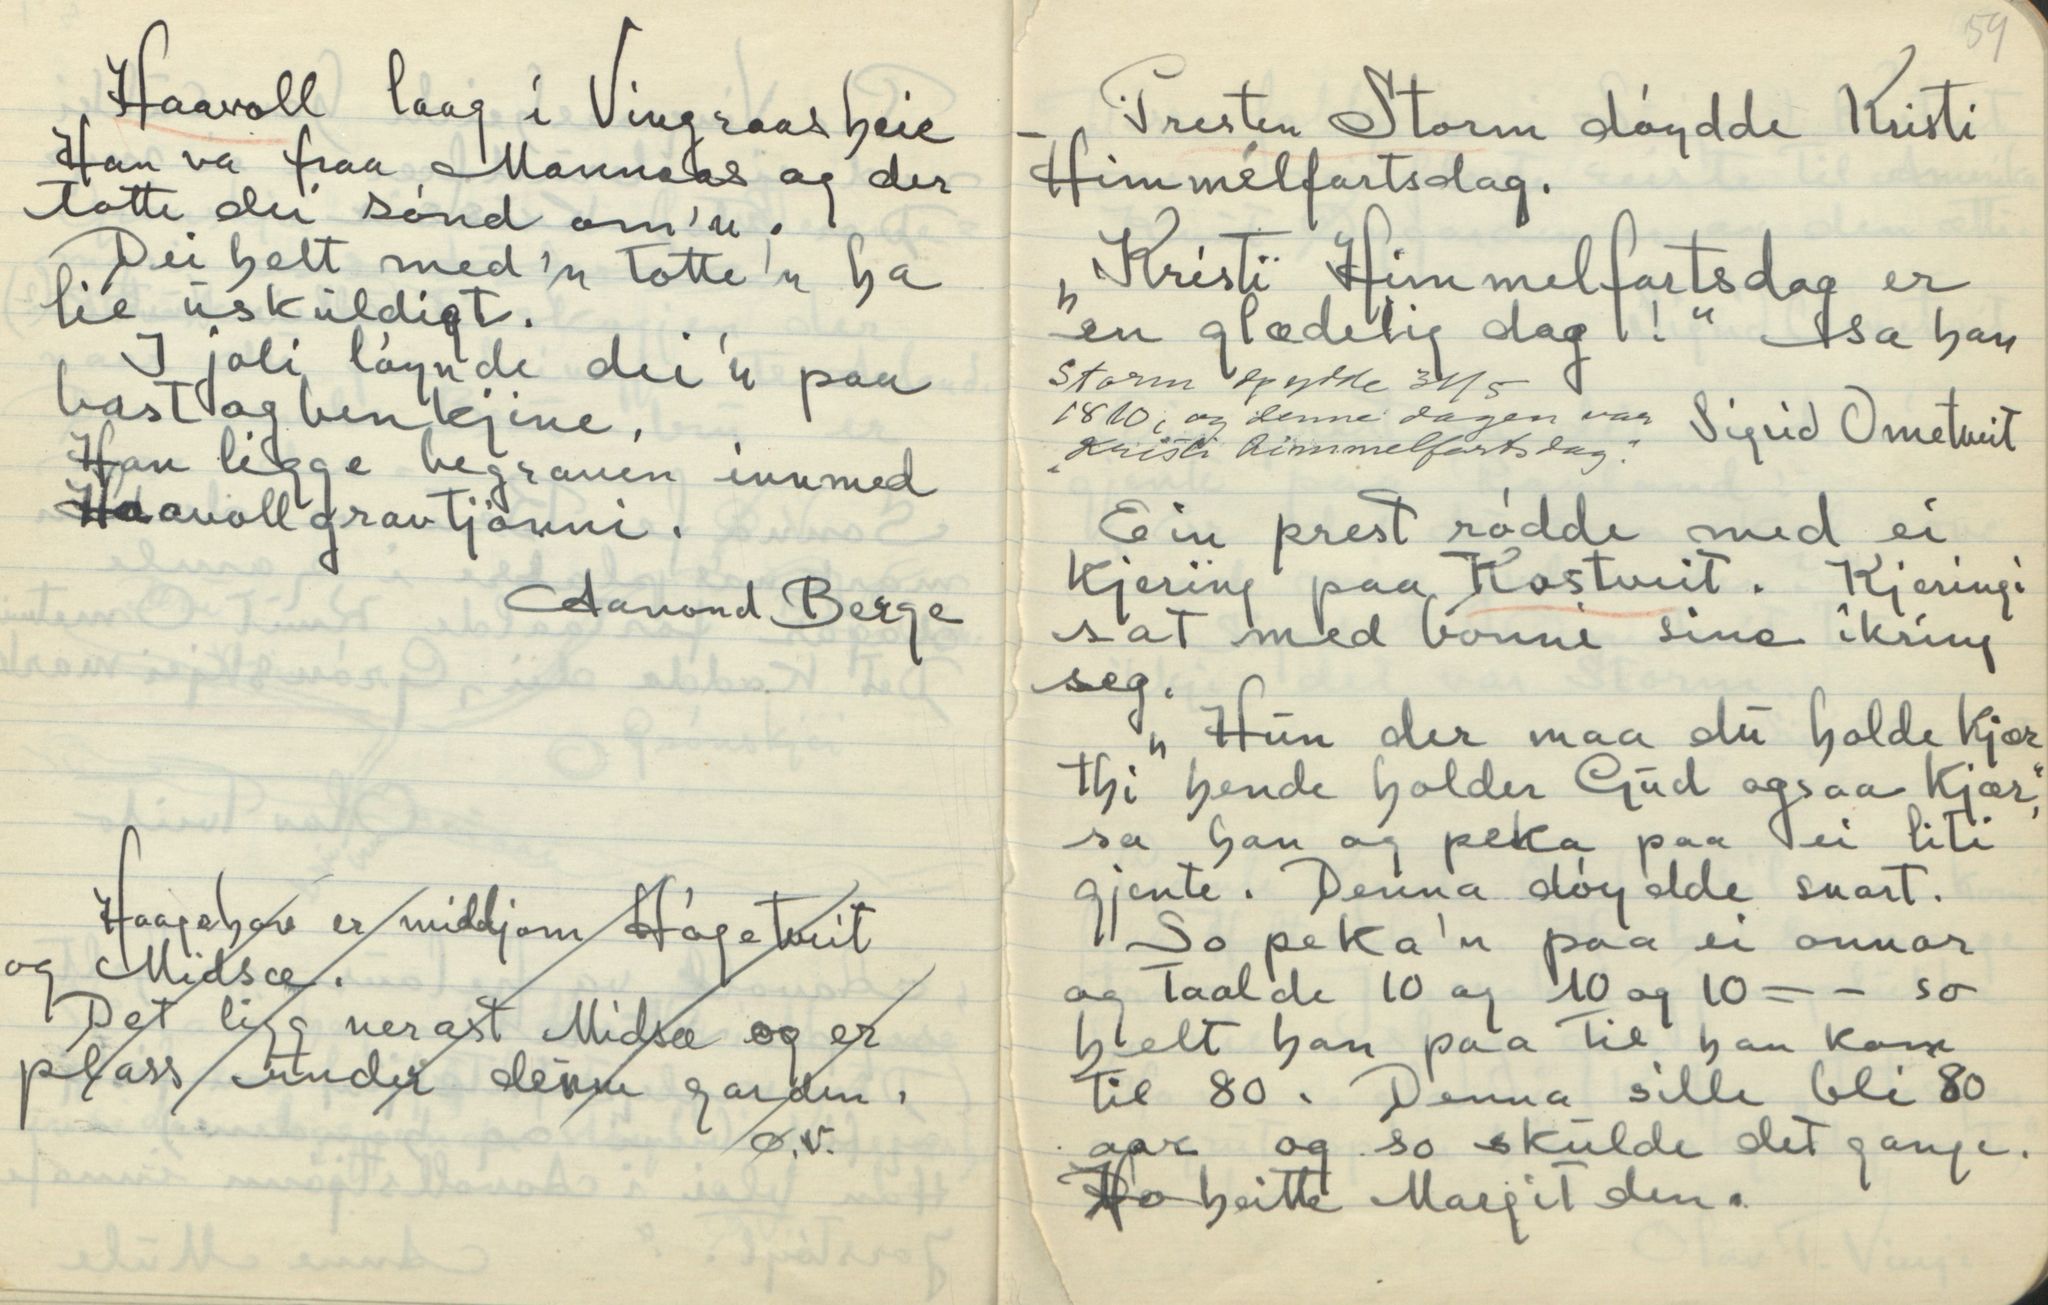 Haavoll laag i Vingraasheie
Han va fraa Mannaas og der
totte dei sónd om'n.
Dei helt med'n totte'n ha
lie uskuldigt.
I joli lóynde dei'n paa
bast og benkjine,
Han ligge begraven innmed
Haavollgravtjónni.
Aavond Berge
Haagehov er middjom Hógetveit
og Midsæ.
Det ligg nerast Midsæ og er
plass under denne garden.
Ø.V.
59
Presten Storm dóydde Kristi
Himmelfartsdag.
"Kristi Himmelfartsdag er
en glædelig dag!" sa han
Storm døydde 31/5
1810, og denne dagen var
"Kristi himmelfartsdag".
Sigrid Ometveit
Ein prestródde med ei
Kjering paa Kostveit. Kjeringi
sat med bonni sine ikring
seg.
"Hun der maa du holde Kjær
thi hende holder Gud ogsaa Kjær",
sa han og peka paa ei liti
gjente. Denna dóydde snart.
So peka'n paa ei onnor
og taalde 10 og 10 og 10 - - - so
helt han paa til han kom
til 80. Denna sille bli 80
aar og so skulde det gange.
Ho heitte Margit den.